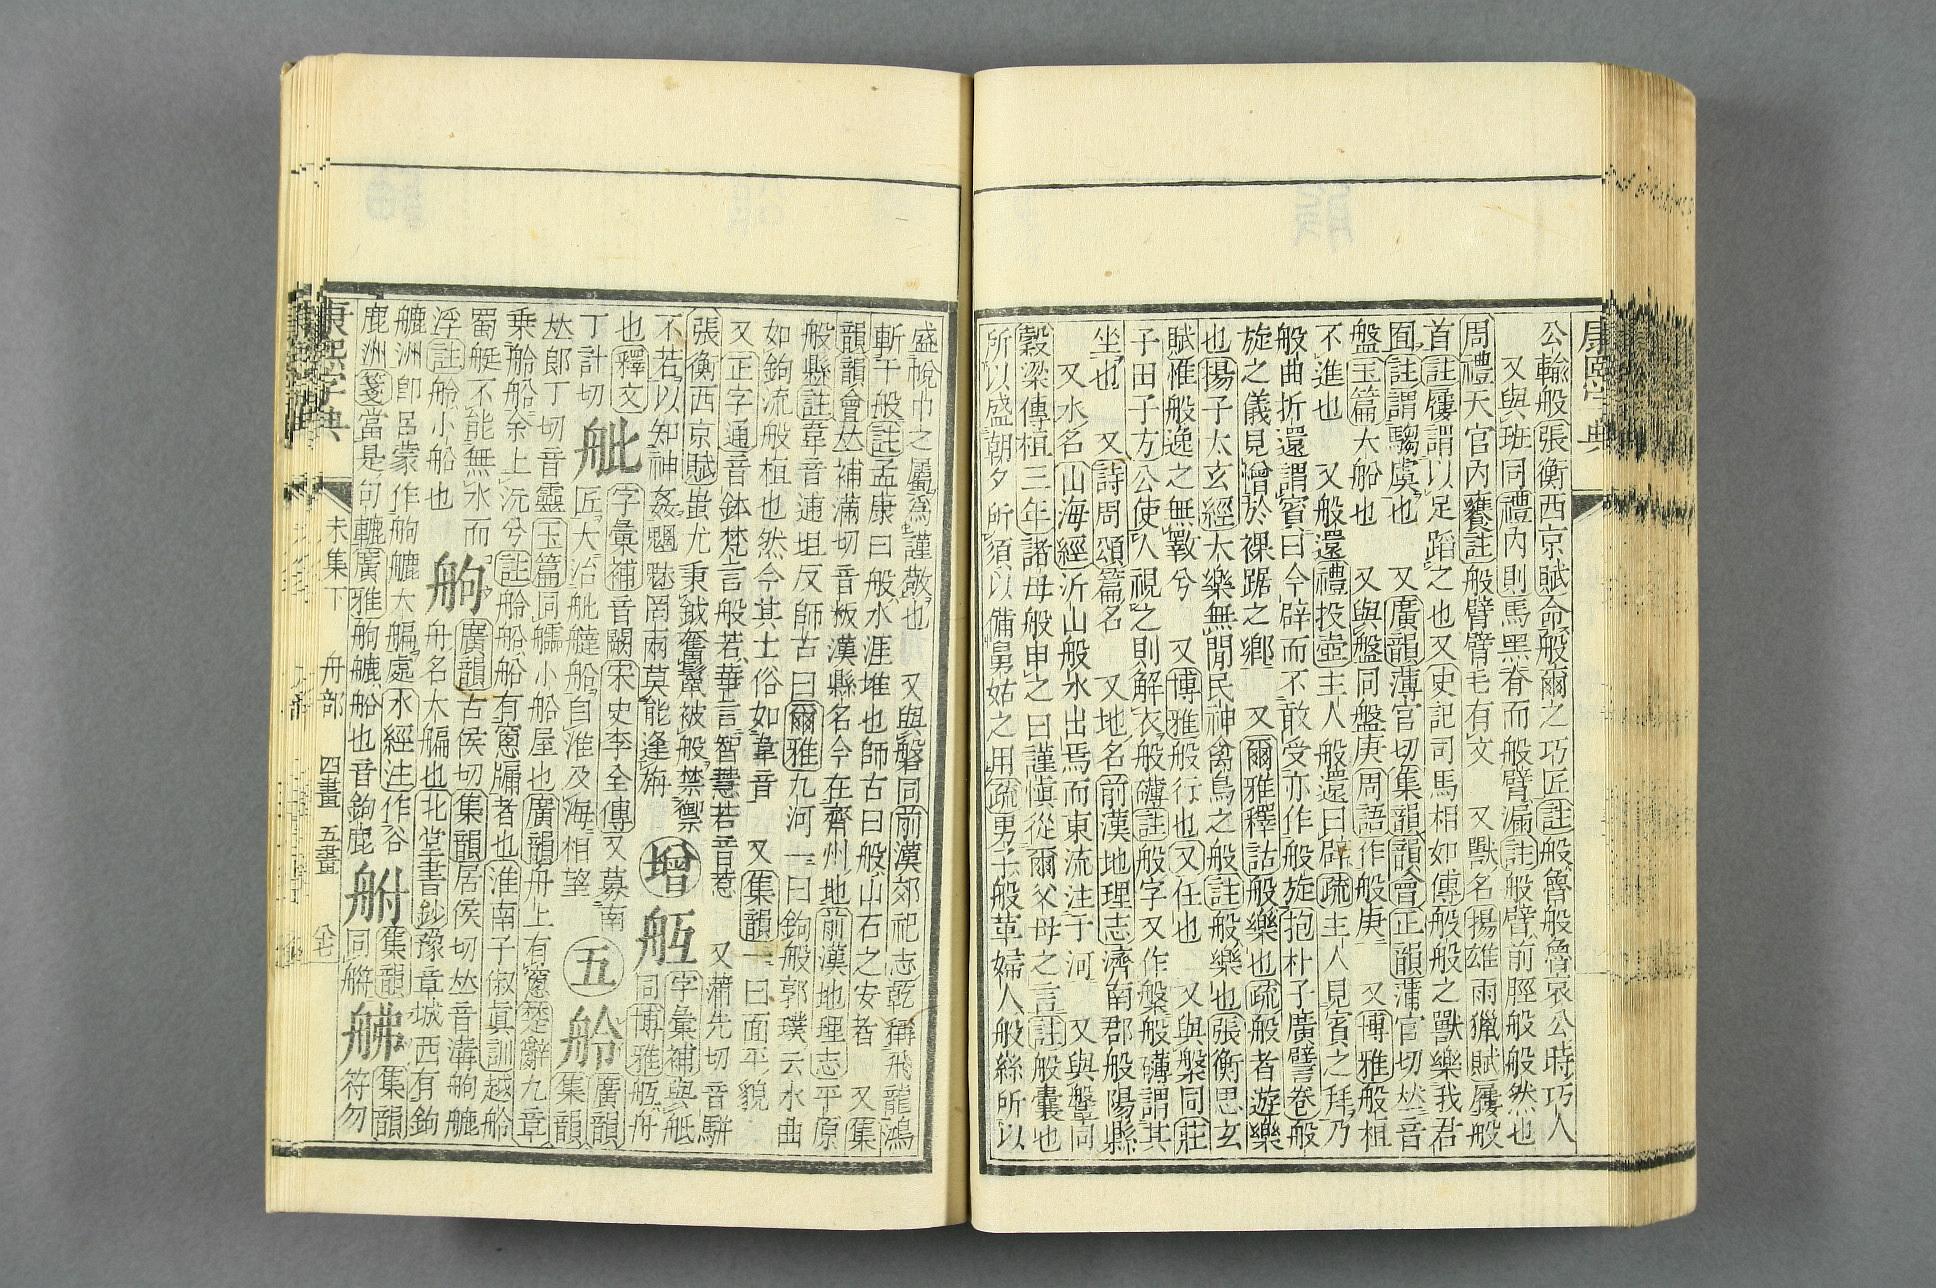 康熙字典
公輸般張衡西京賦命般爾之巧匠註般魯般魯哀公時巧人
又與班同禮內則馬黑脊而般臂漏註般臂前脛般般然也
周禮天官內饔註般臂臂毛有文 又獸名揚雄雨獵賦屨般
首註屨謂以足蹈之也又史記司馬相如傳般般之獸樂我君
囿註謂騶虞也 又廣韻薄官切集韻韻會正韻蒲官切𠀤音
盤玉篇大船也 又與盤同盤庚周語作般庚 又博雅般桓
不進也 又般還禮投壺主人般還曰辟疏主人見賓之拜乃
般曲折還謂賓曰今辟而不敢受亦作般旋抱朴子廣譬卷般
旋之儀見憎於裸踞之鄉 又爾雅釋詁般樂也疏般者遊樂
也揚子太玄經大樂無閒民神禽鳥之般註般樂也張衡思玄
賦惟般逸之無斁兮 又博雅般行也又任也 又與槃同莊
子田子方公使人視之則解衣般礴註般字又作槃般礴謂其
坐也 又詩周頌篇名 又地名前漢地理志濟南郡般陽縣
又水名山海經沂山般水出焉而東流注于河 又與鞶同
穀梁傳桓三年諸母般申之曰謹愼從爾父母之言註般囊也
所以盛朝夕所須以備舅姑之用疏男子般革婦人般絲所以
盛帨巾之屬爲謹敬也 又與磐同前漢郊祀志乾稱飛龍鴻
漸于般註孟康曰般水涯堆也師古曰般山石之安者 又集
韻韻會𠀤補滿切音板漢縣名今在齊州地前漢地理志平原
般縣註韋音逋坦反師古曰爾雅九河一曰鉤般郭璞云水曲
如鉤流般桓也然今其土俗如韋音 又集韻一曰面平貌
又正字通音鉢梵言般若華言智慧若音惹 又蒲先切音騈
張衡西京賦蚩尤秉鉞奮鬣被般禁禦
不若以知神姦魑魅罔兩莫能逢旃 增 䑨 字彙補與舐
同博雅䑨舟
也釋文 字彙補音闕宋史李全傳又募南
丁計切 舭 匠大治舭𦪭船自淮及海相望 五 舲 廣韻
集韻
𠀤郎丁切音靈玉篇同艫小船屋也廣韻舟上有窻楚辭九章
乗舲船余上沅兮註舲船船有窻牖者也淮南子俶眞訓越舲
蜀艇不能無水而浮註舲小船也 舸 廣韻古侯切集韻居侯切𠀤音溝舸䑼
舟名大艑也北堂書鈔豫章城西有鉤
䑼洲卽呂蒙作舸䑼大艑處水經注作谷
鹿洲箋當是句轆廣雅舸䑼船也音鉤鹿 䑧 集韻
同艜 䑶 集韻
符勿
康熙字典 未集下 舟部 四畫 五畫